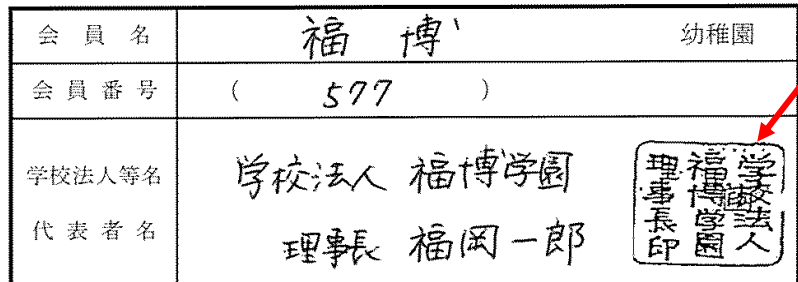 会員名 福博 幼稚園
会員番号 (577)
学校法人等名 学校法人 福博学園
代表者名 理事長 福岡一郎
学校法人
福博学園
理事長印